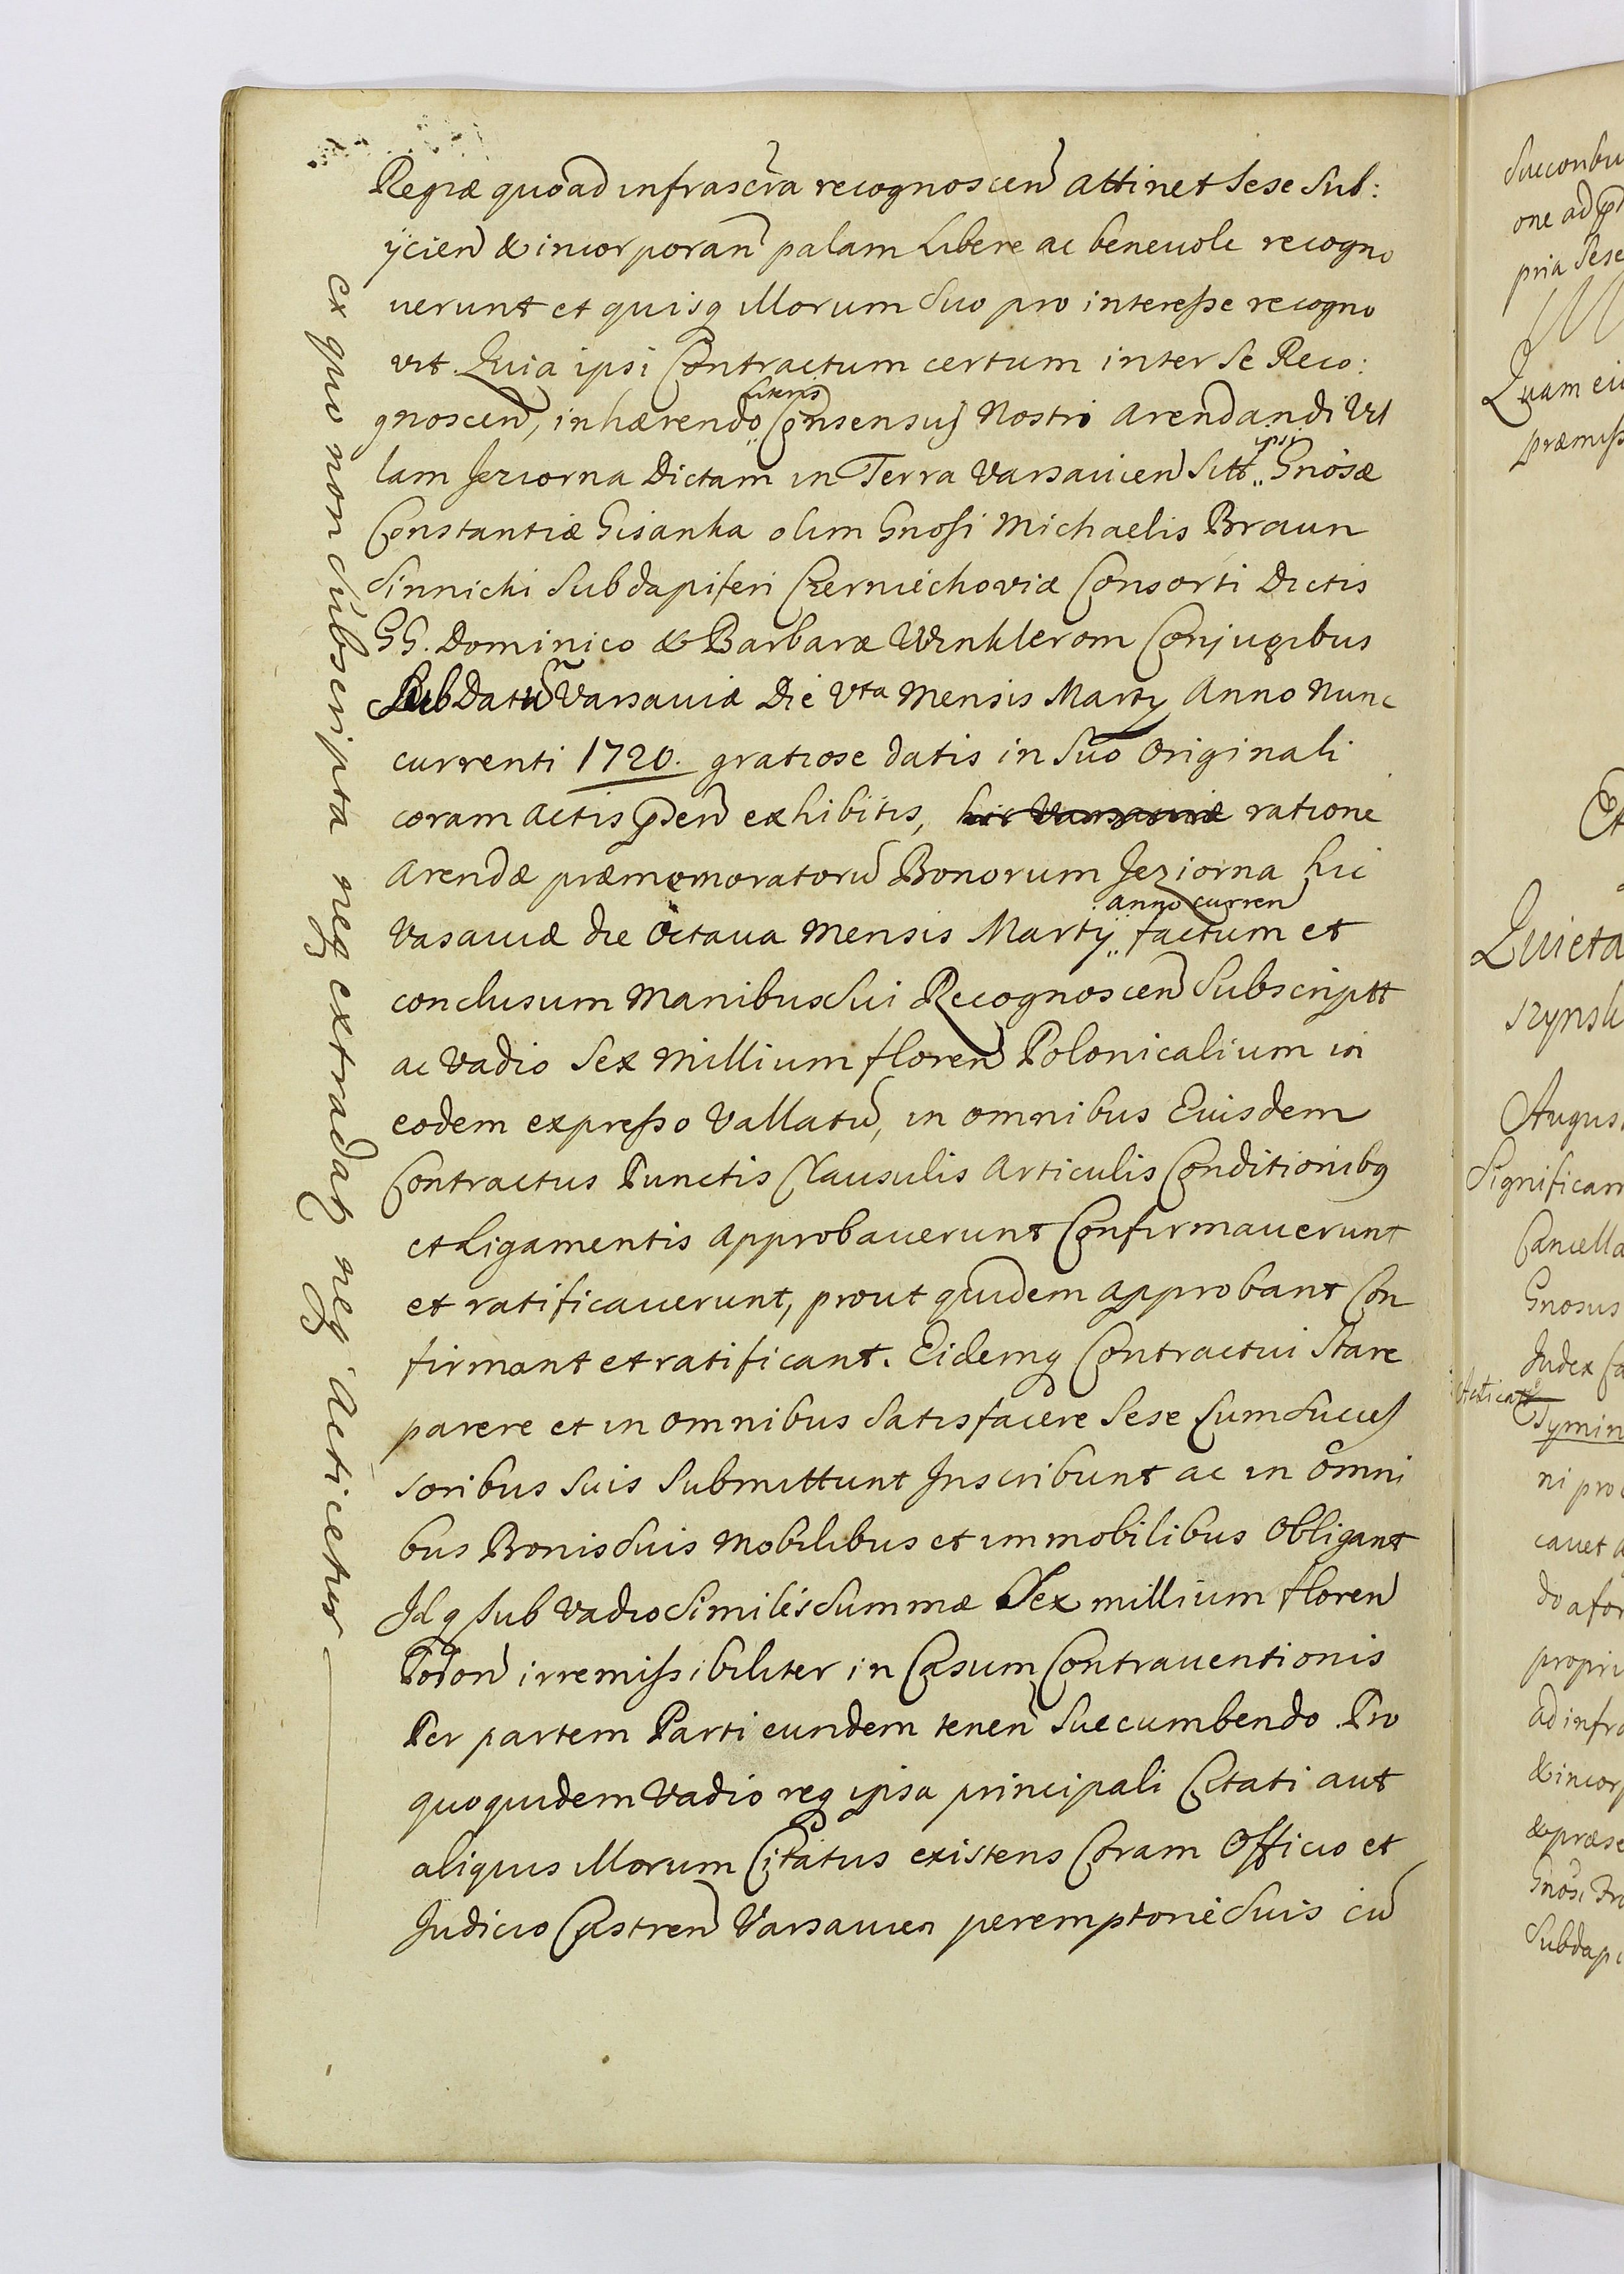 Regiæ quoad infrascra recognoscen attinet sese sub:
ijcien & incorporan palam libere ac beneuole recogno
uerunt et quisq illorum suo pro interesse recogno
vit. Quia ipsi Contractum certum inter se Reco:
gnoscen, inhærendo Literis Consensus Nostri arendandi Vil
lam Jeziorna Dictam in Terra Varsauien sitt ipsi Gnosæ
Constantiæ Gisanka olim Gnosi Michaelis Braun
Sinnicki Subdapiferi Czerniechoviæ Consorti Dictis
GG. Dominico & Barbaræ Winklerom Conjugibus
Sub Datu Varsauiæ Die Vta Mensis Martij Anno Nunc
currenti 1720. gratiose datis in suo Originali
coram actis pden exhibitis, hic Varsaviæ ratione
Arendæ præmemoratoru Bonorum Jeziorna hic
Vasauiæ die Octaua Mensis Martij anno curren factum et
conclusum Manibus sui Recognoscen Subscriptt
ac Vadio Sex Millium floren Polonicalium in
eodem expresso Vallatu, in omnibus Euisdem
Contractus Punctis Clausulis Articulis Conditionibq
et Ligamentis approbauerunt Confirmauerunt
et ratificauerunt, prout quidem approbant Con
firmant et ratificant. Eidemq Contractui Stare
parere et in omnibus Satisfacere Sese Cum Succes
soribus suis Submittunt Inscribunt ac in omni
bus Bonis suis Mobilibus et immobilibus Obligant
Idq sub Vadio similis summæ Sex millium floren
Polon irremissibiliter in Casum Contrauentionis
Per partem Parti eundem tenen Succumbendo Pro
quo quidem Vadio req ipsa principali Citati aut
aliquis illorum Citatus existens Coram Officio et
Judicio Castren Varsauien peremptorie suis cu
ex quo non subscripta neq extradat neq acticetur